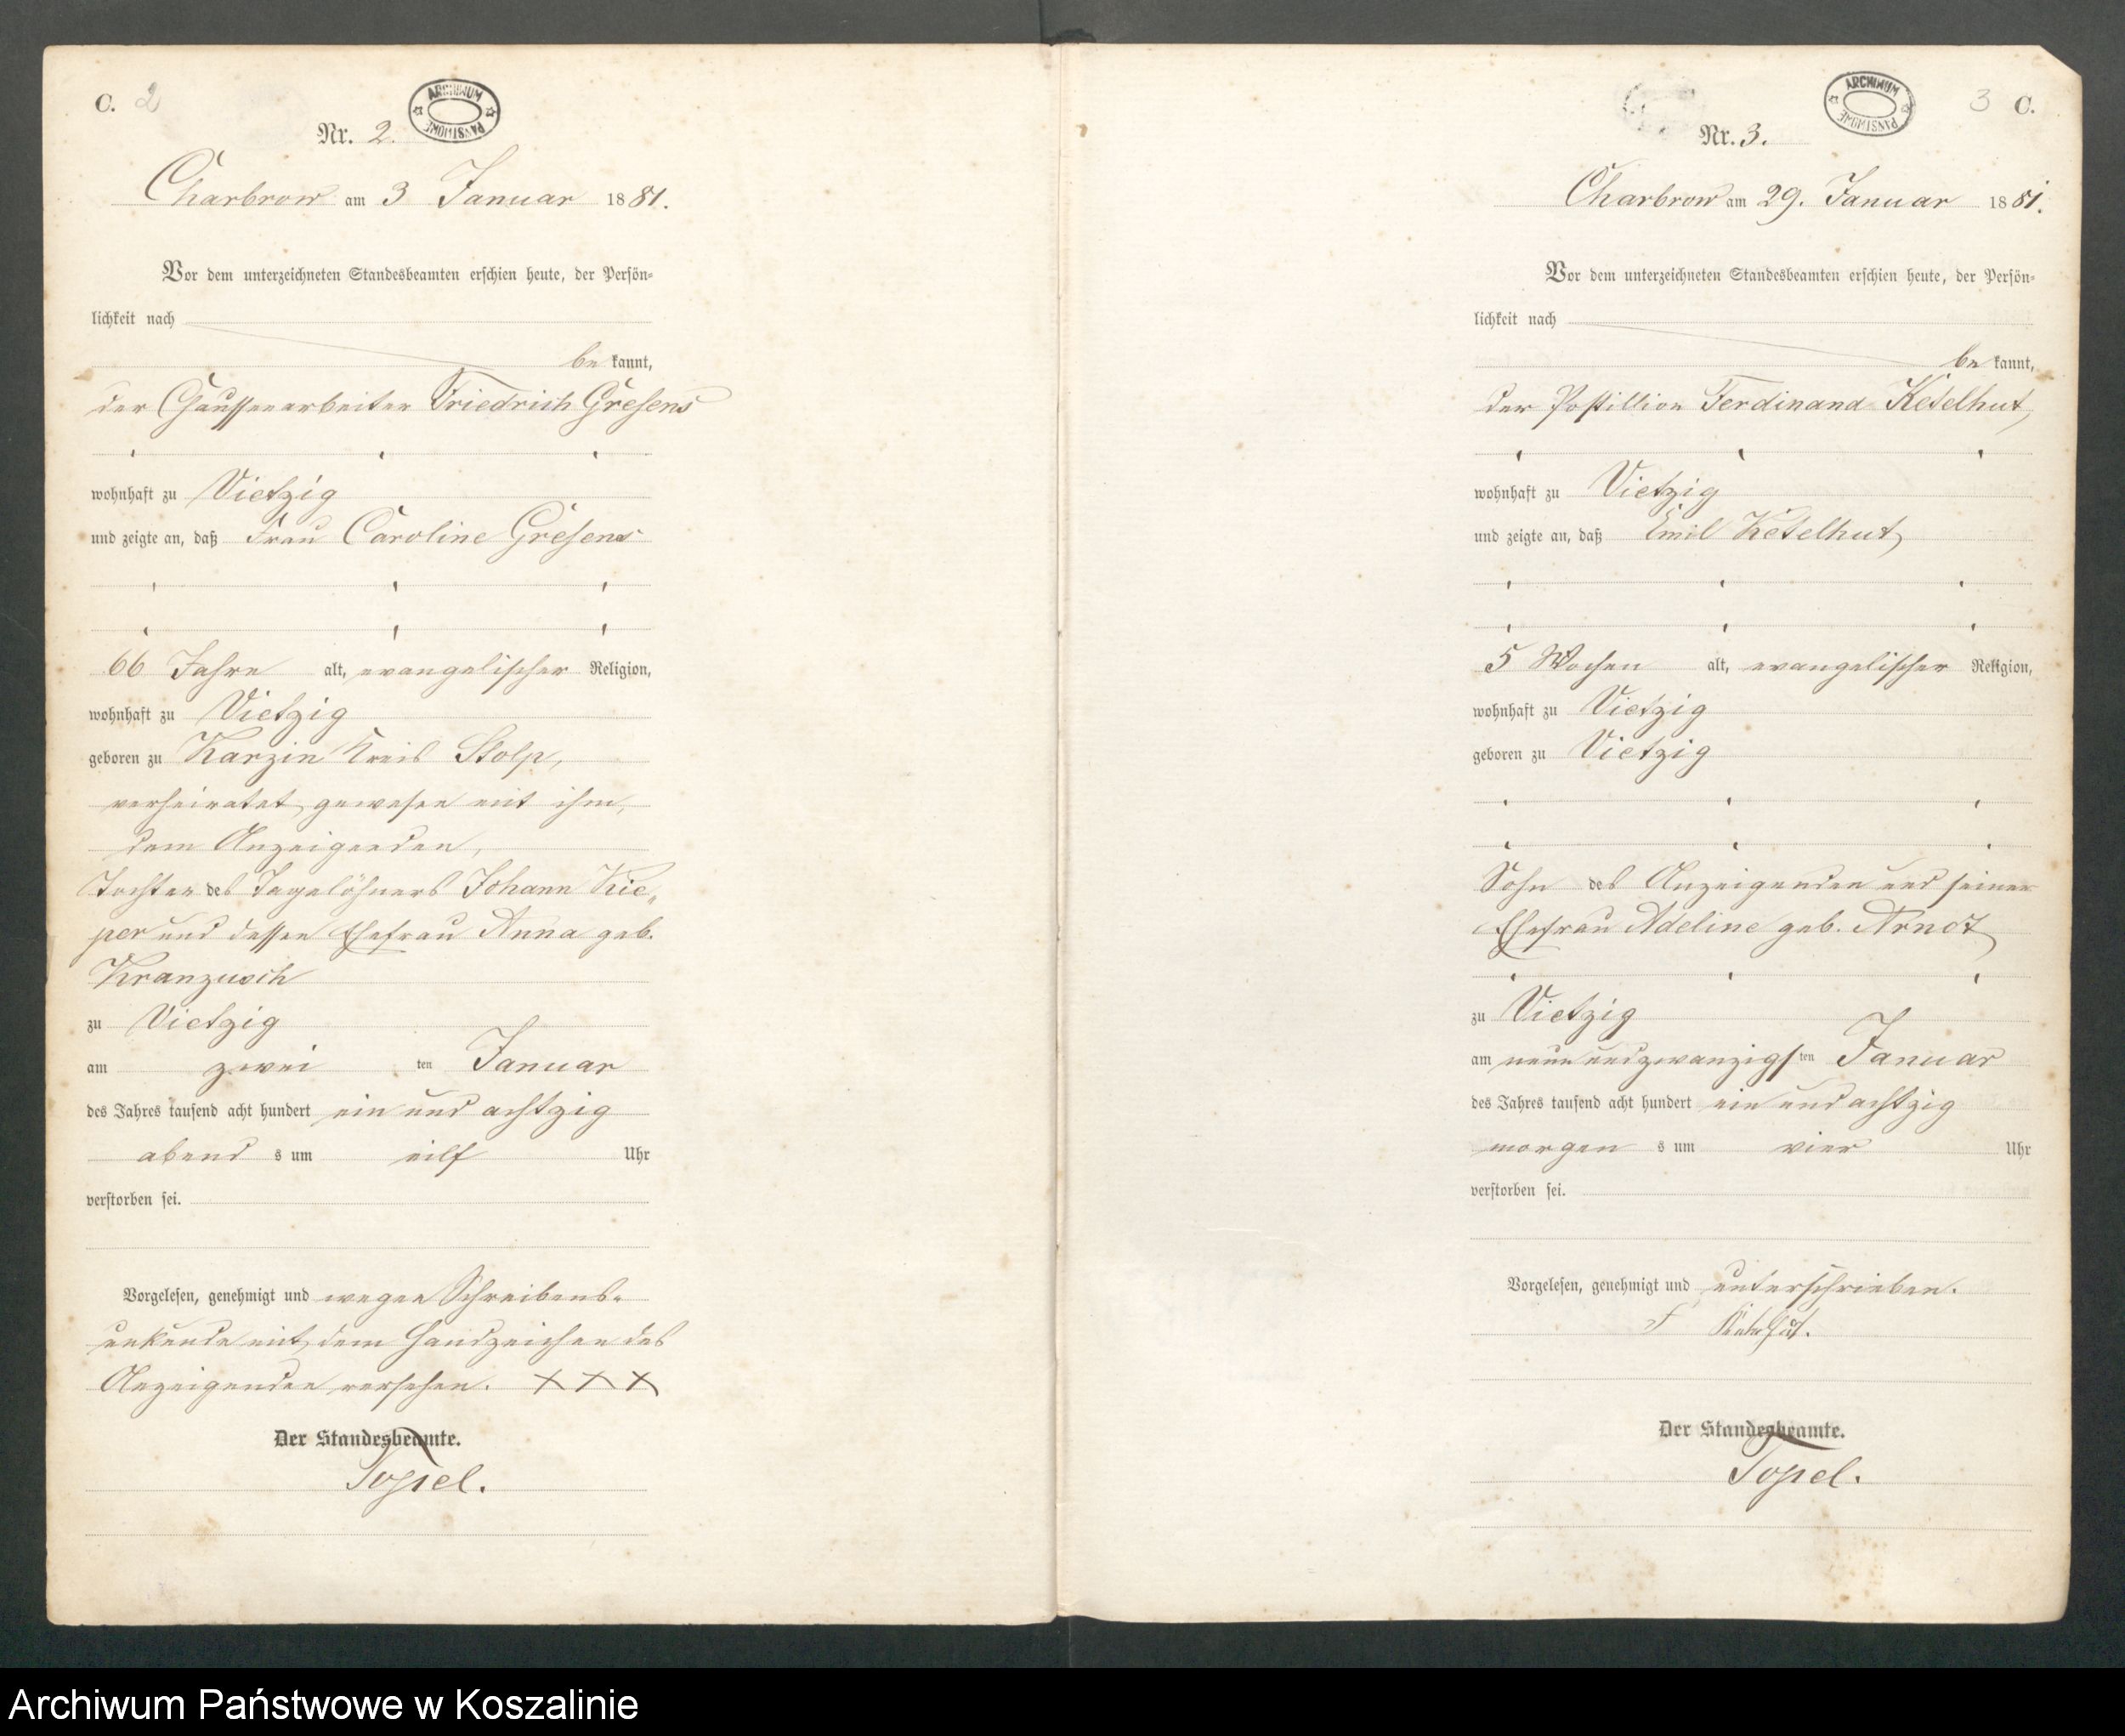 C. 2
ARCHIWUM PAŃSTWOWE
Nr. 2.
Charbrow am 3 Januar 1881.
Vor dem unterzeichneten Standesbeamten erschien heute, der Persön-
lichkeit nach
be kannt,
der Chausseearbeiter Friedrich Gresens
wohnhaft zu Vietzig
und zeigte an, daß Frau Caroline Gresens
66 Jahre alt, evangelischer Religion,
wohnhaft zu Vietzig
geboren zu Karzin Kreis Stolp,
verheiratet gewesen mit ihm,
dem Anzeigenden,
Tochter des Tagelöhners Johann Kie-
per und dessen Ehefrau Anna geb.
Kranzusch
zu Vietzig
am zwei ten Januar
des Jahres tausend acht hundert ein und achtzig
abend s um eilf Uhr
verstorben sei.
Vorgelesen, genehmigt und wegen Schreibens-
unkunde mit dem Handzeichen des
Anzeigenden versehen. XXX
Der Standesbeamte.
Topel.
3 C.
ARCHIWUM PAŃSTWOWE
Nr. 3.
Charbrow am 29. Januar 1881.
Vor dem unterzeichneten Standesbeamten erschien heute, der Persön-
lichkeit nach
be kannt,
der Postillion Ferdinand Ketelhut,
wohnhaft zu Vietzig
und zeigte an, daß Emil Ketelhut,
5 Wochen alt, evangelischer Religion,
wohnhaft zu Vietzig
geboren zu Vietzig
Sohn des Anzeigenden und seiner
Ehefrau Adeline geb. Arndt
zu Vietzig
am neun und zwanzigs ten Januar
des Jahres tausend acht hundert ein und achtzig
morgen s um vier Uhr
verstorben sei.
Vorgelesen, genehmigt und unterschrieben.
F Ketelhut.
Der Standesbeamte.
Topel.
Archiwum Państwowe w Koszalinie